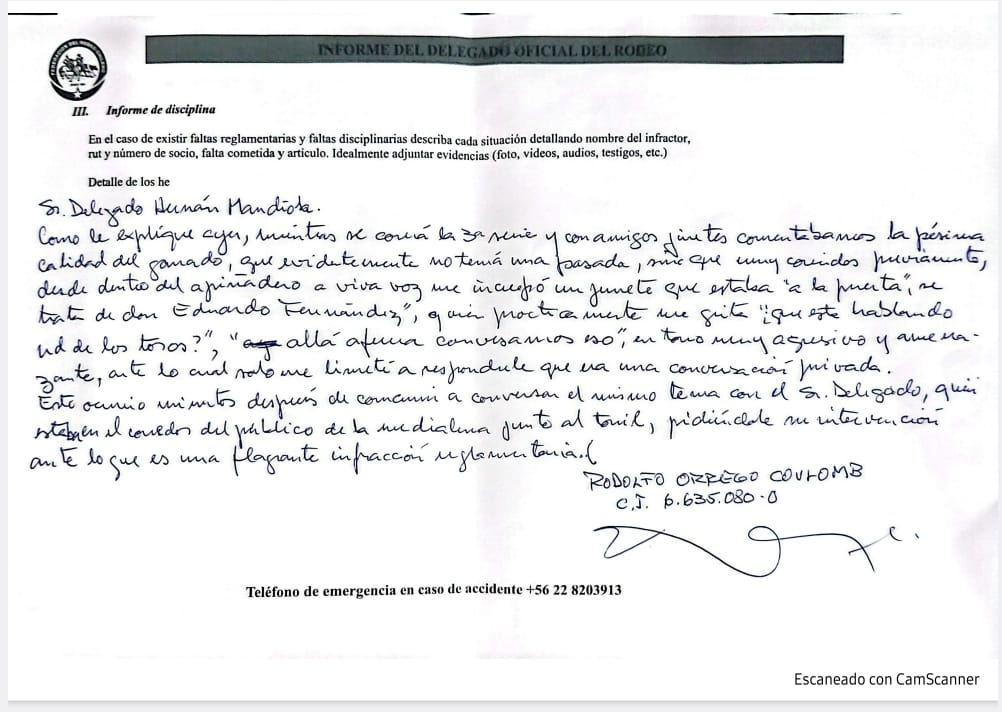 INFORME DEL DELEGADO OFICIAL DEL RODEO
III. Informe de disciplina
En el caso de existir faltas reglamentarias y faltas disciplinarias describa cada situación detallando nombre del infractor,
rut y número de socio, falta cometida y articulo. Idealmente adjuntar evidencias (foto, videos, audios, testigos, etc.)
Detalle de los he
Sr. Delegado Hernán Mandiola.
Como le expliqué ayer, mientras se corría la 3ª serie y con amigos jinetes comentábamos la pésima
calidad del ganado, que evidentemente no tenía una pasada, sino que muy corridos previamente,
desde dentro del apiñadero a viva voz me increpó un jinete que estaba "a la puerta", se
trata de don Eduardo Fernández", quien practicamente me grita "¿que está hablando
ud de los toros?", " allá afuera conversamos eso", en tono muy agresivo y amena-
zante, ante lo cual solo me limité a responderle que era una conversación privada.
Esto ocurrió minutos después de comenzar a conversar el mismo tema con el Sr. Delegado, quien
estaba en el corredor del público de la medialuna junto al toril, pidiéndole su intervención
ante lo que es una flagrante infracción reglamentaria.
RODOLFO ORREGO COULOMB
C.I. 6.635.080-0
Teléfono de emergencia en caso de accidente +56 22 8203913
Escaneado con CamScanner